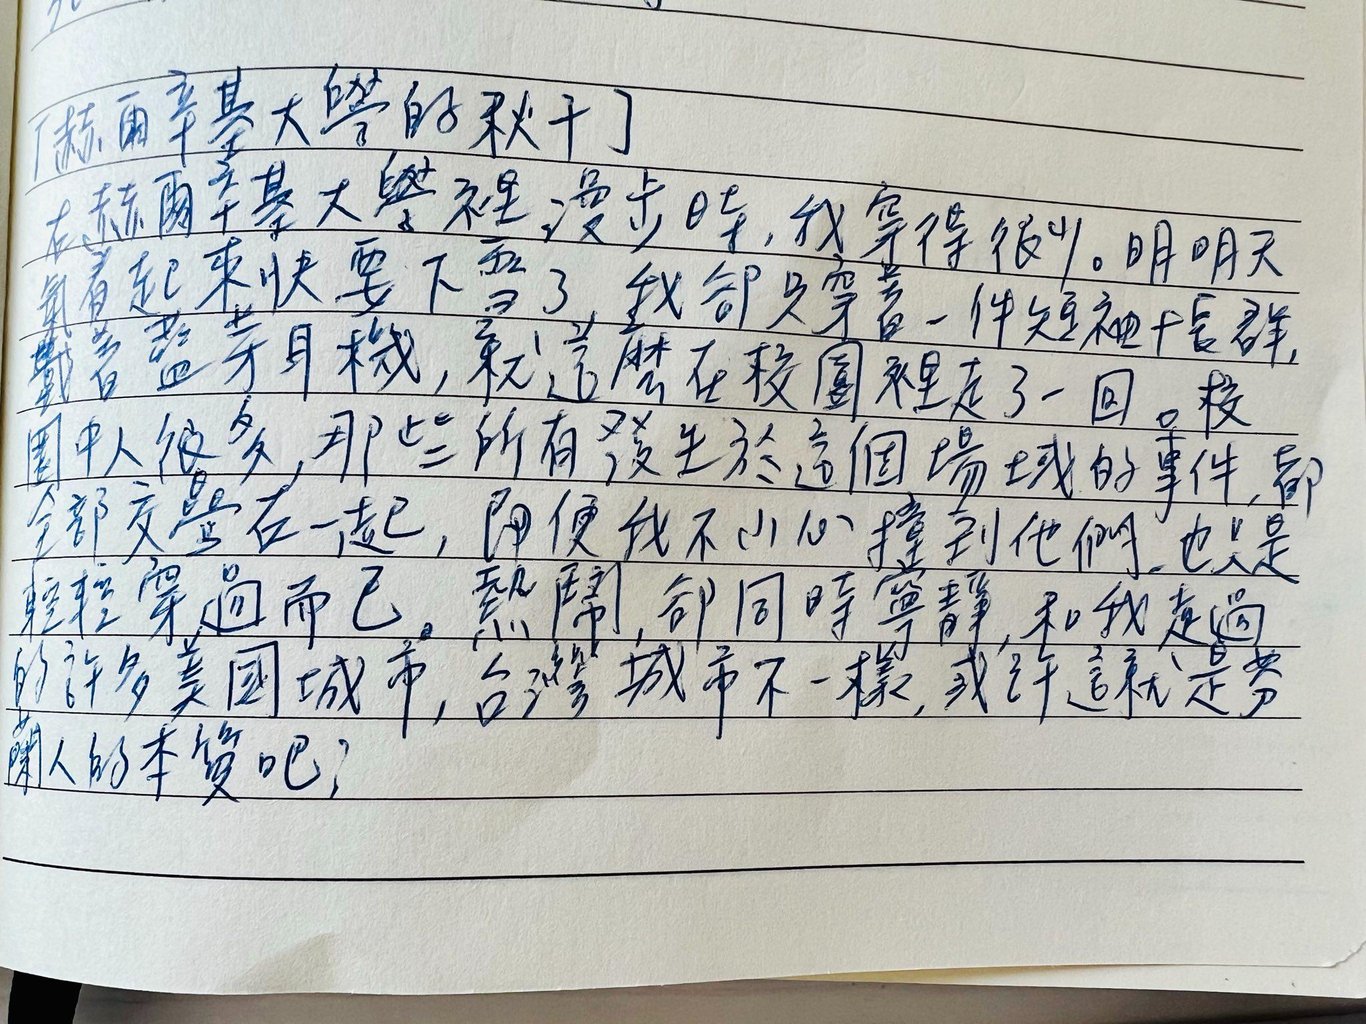 「赫爾辛基大學的秋千」
在赫爾辛基大學裡漫步時,我穿得很少。明明天
氣看起來快要下雪了,我卻只穿著一件短袖+長裙,
戴著藍芽耳機,就這麼在校園裡走了一回。校
園中人很多,那些所有發生於這個場域的事件,都
全部交疊在一起,即便我不小心撞到他們,也只是
輕輕穿過而已。熱鬧,卻同時寧靜,和我走過
的許多美國城市,台灣城市不一樣,或許這就是芬
蘭人的本質吧?